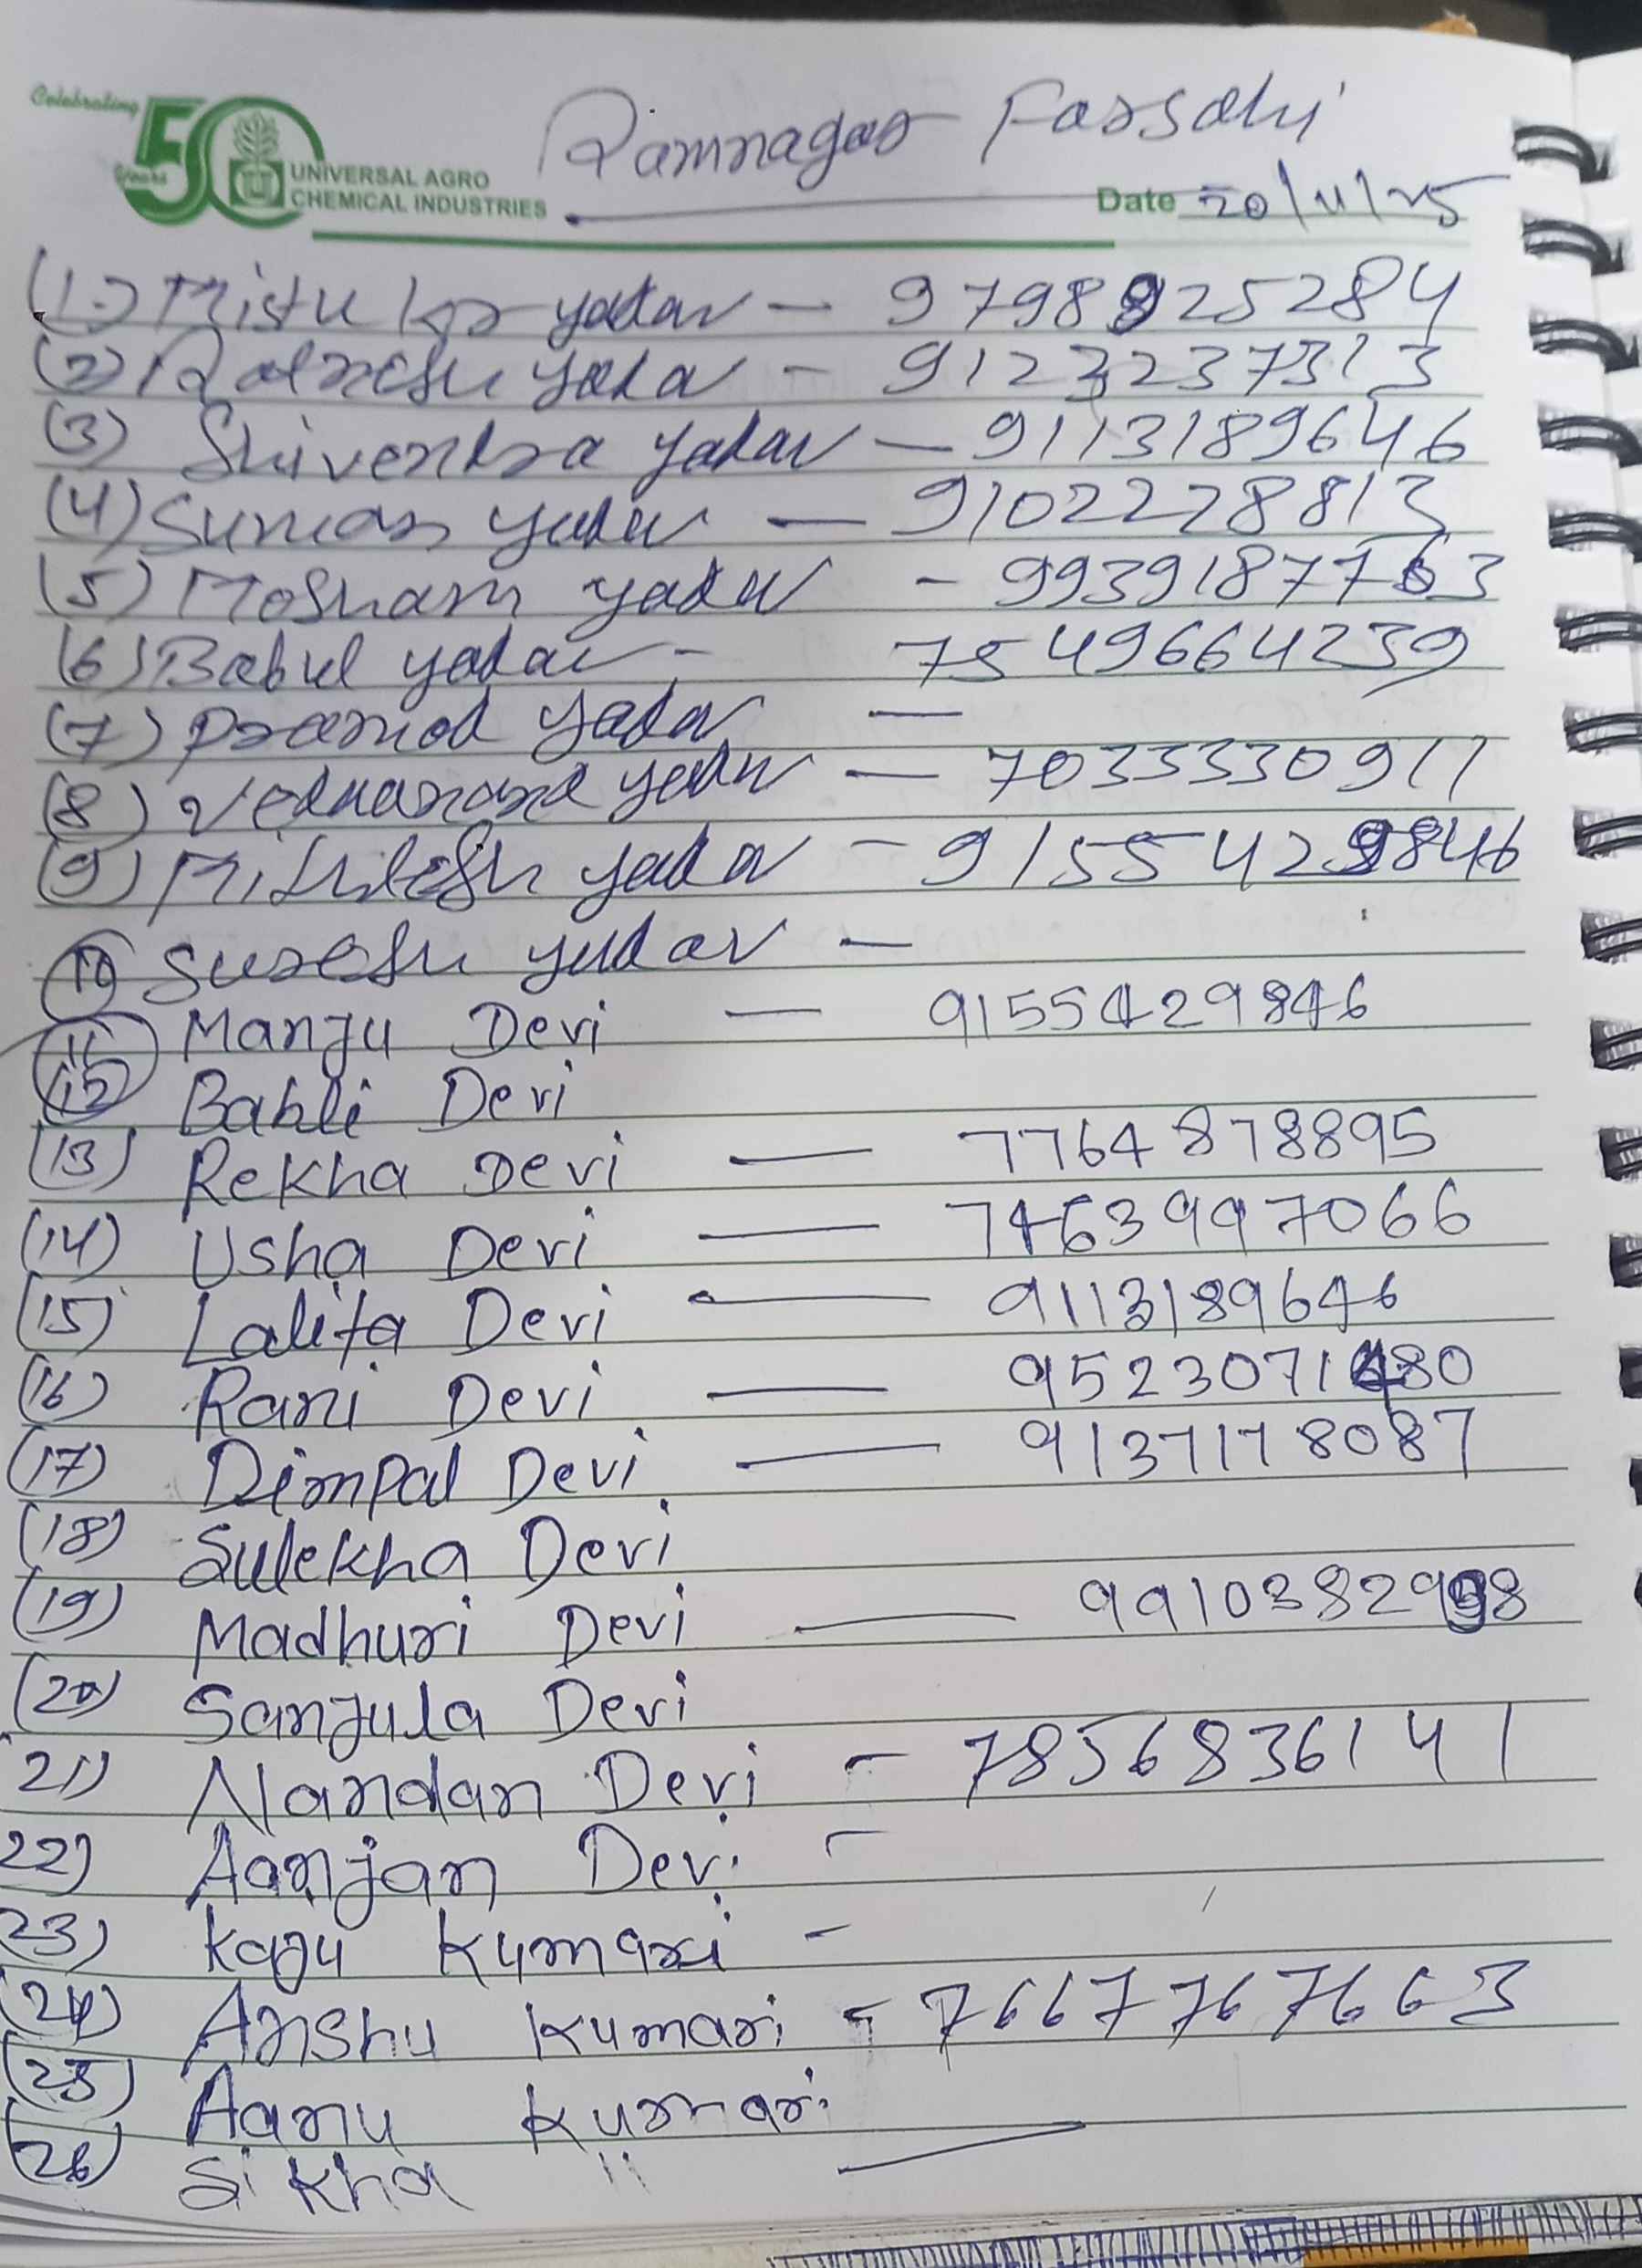 Celebrating
50
Years
UNIVERSAL AGRO
CHEMICAL INDUSTRIES
Ramnagar Farsahi
Date 20/11/25
(1.) Mistu kr yadav - 9798925284
(2) Ratnesh yada - 9123237313
(3) Shivendra yadav - 9113189646
(4) Suman yadav - 9102278813
(5) Mosham yadav - 9939187763
(6) Babul yadav - 7549664239
(7) Pramod yadav -
(8) Vednanand yadav - 7033330911
(9) Mithilesh yadav - 9155429846
(10) Suresh yadav -
(11) Manju Devi - 9155429846
(12) Babli Devi
(13) Rekha Devi - 7764878895
(14) Usha Devi - 7463997066
(15) Lalita Devi - 9113189646
(16) Rani Devi - 9523071480
(17) Dimpal Devi - 9137178087
(18) Sulekha Devi
(19) Madhuri Devi - 9910382998
(20) Sanjula Devi
21) Nandan Devi - 7856836141
22) Aanjan Devi -
23) Kaju Kumari -
(24) Anshu Kumari - 7667767663
(25) Aanu Kumari
(26) Sikha "